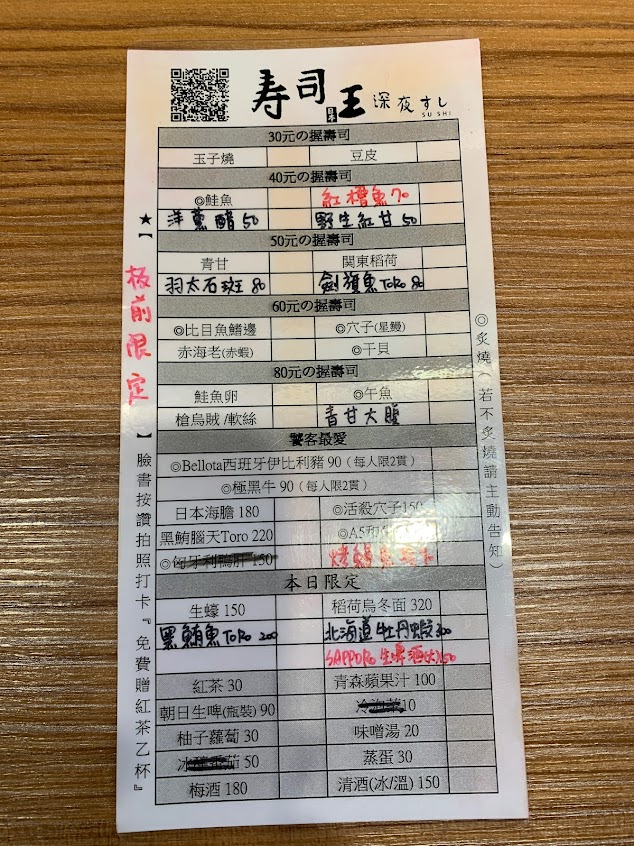 寿司王 深夜すし
日本 SUSHI
30元の握壽司
玉子燒 豆皮
40元の握壽司
◎鮭魚 紅橧魚70
洋蔥醋50 野生紅甘50
50元の握壽司
青甘 関東稻荷
羽太石斑 80 劍旗魚Toro 80
60元の握壽司
◎比目魚鰭邊 ◎穴子(星鰻)
赤海老(赤蝦) ◎干貝
80元の握壽司
鮭魚卵 ◎午魚
槍烏賊/軟絲 青甘大腹
饕客最愛
◎Bellota西班牙伊比利豬 90（每人限2貫）
◎極黑牛 90（每人限2貫）
日本海膽 180 ◎活殺穴子150
黑鮪腦天Toro 220 ◎A5和牛
◎匈牙利鴨肝 150
本日限定
生蠔 150 稻荷烏冬面 320
黑鮪魚Toro 200 北海道牡丹蝦300
SAPPORO生啤酒(大)150
紅茶 30 青森蘋果汁 100
朝日生啤(瓶裝) 90 10
柚子蘿蔔 30 味噌湯 20
50 蒸蛋 30
梅酒 180 清酒(冰/溫) 150
★【板前限定】臉書按讚拍照打卡『免費贈紅茶乙杯』
◎炙燒（若不炙燒請主動告知）